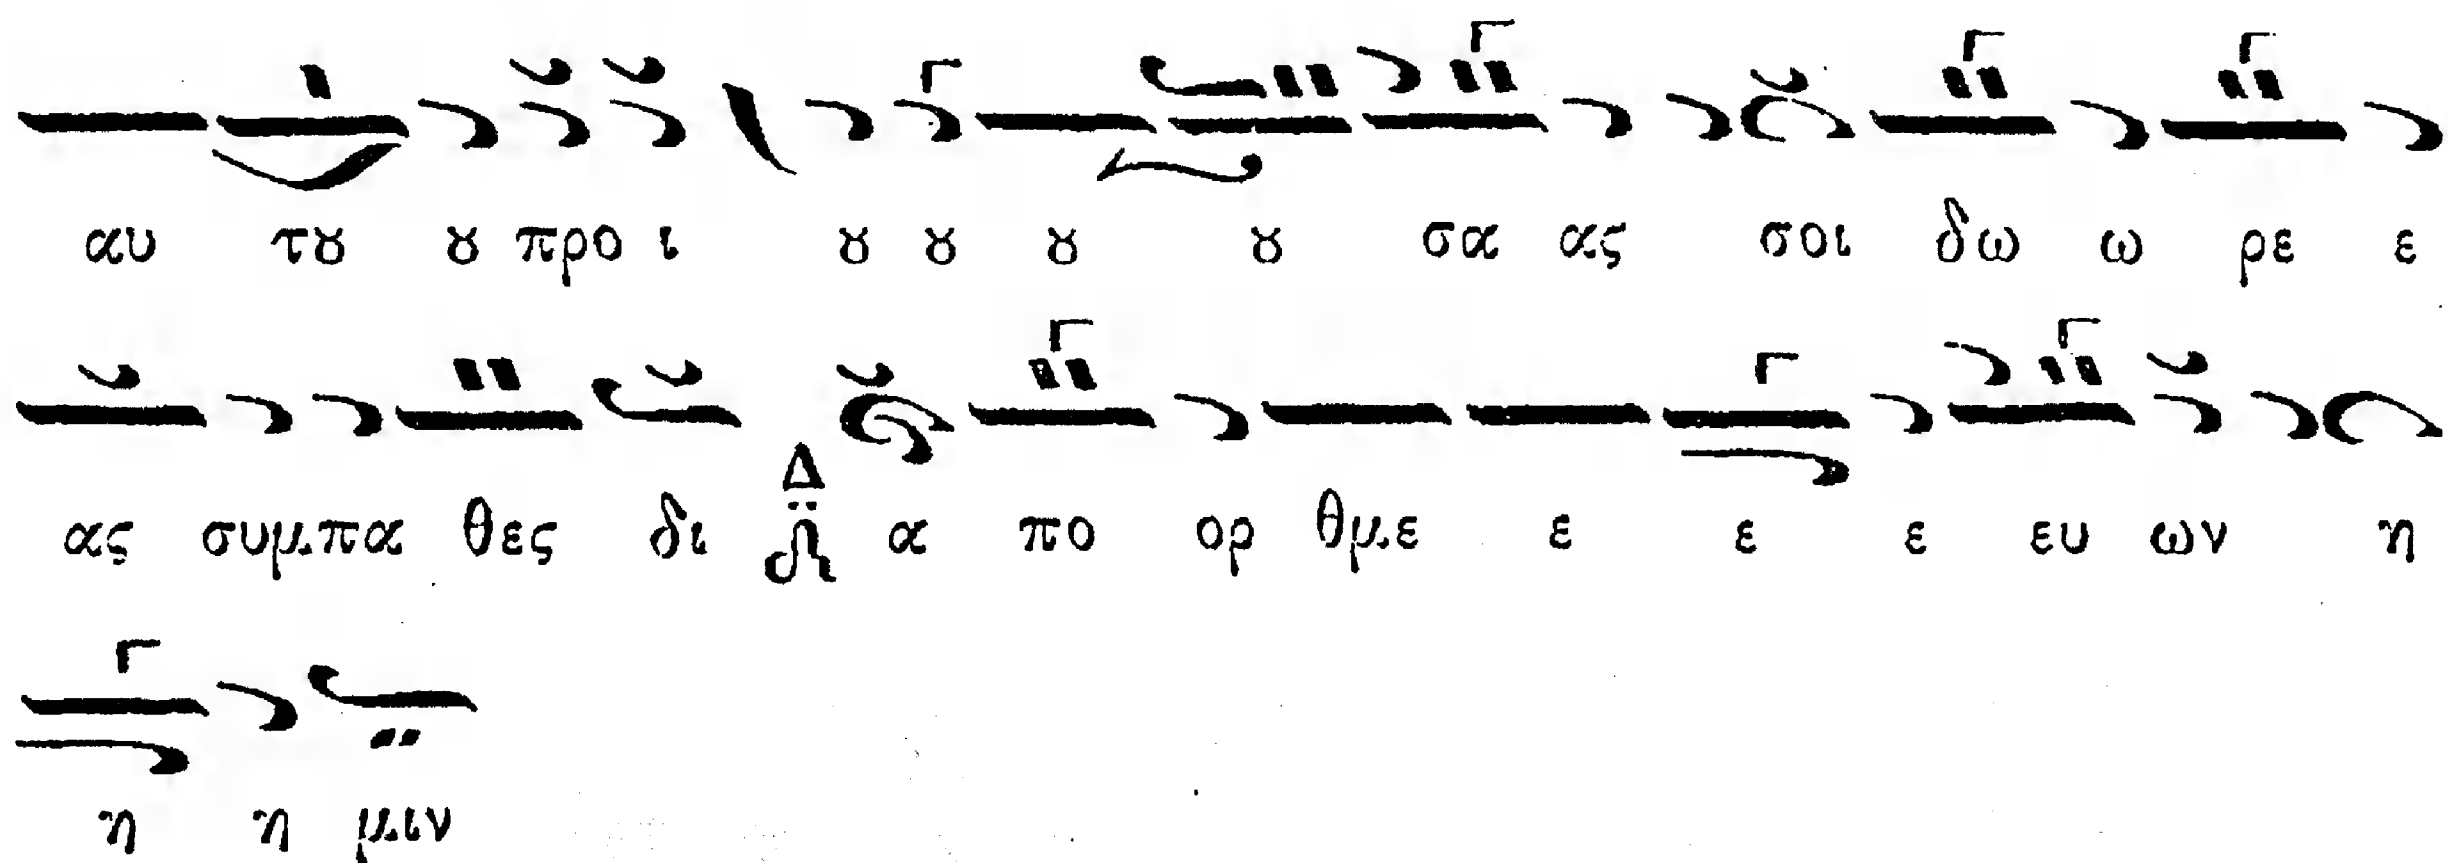 αυ τȣ ȣ προ ι ȣ ȣ ȣ ȣ σα ας σοι δω ω ρε ε
ας συμ πα θες δι Δ α πο ορ θμε ε ε ε ευ ων η
η η μιν